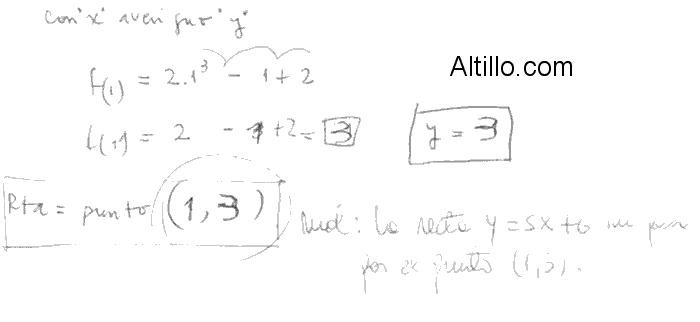 con "x" averiguo "y"
Altillo.com
f(1) = 2.1³ - 1 + 2
f(1) = 2 - 1 + 2 = 3
y = 3
Rta = punto (1, 3)
: La recta y = 5x + 6 no pasa
por el punto (1,3).